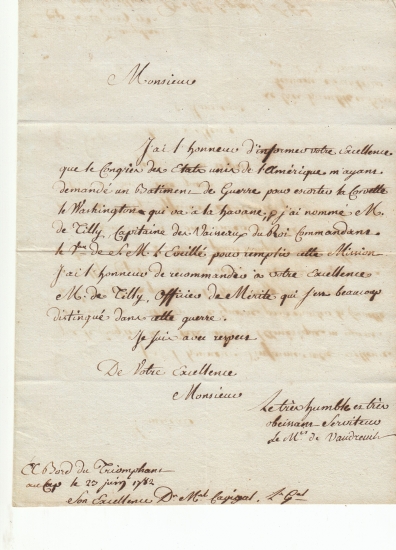 Monsieur
J'ai l'honneur d'informer votre Excellence
que le Congrès des Etats unis de l'Amérique m'ayant
demandé un Batiment de Guerre pour escorter la Corvette
le Washington que va à la havane, j'ai nommé M.
de Tilly, Capitaine des Vaisseaux du Roi Commandant
le Vau de S. M. l'Eveillé pour remplir cette Mission
J'ai l'honneur de recommander à votre Excellence
M. de Tilly, Officier de Mérite qui s'est beaucoup
distingué dans cette guerre.
Je suis avec respect
De Votre Excellence
Monsieur
Le très humble et très
obeissant Serviteur
Le Mis de Vaudreuil
A Bord du Triomphant
au Cap le 23 1782
Son Excellence Dn Mel Cagigal. Lt Gal